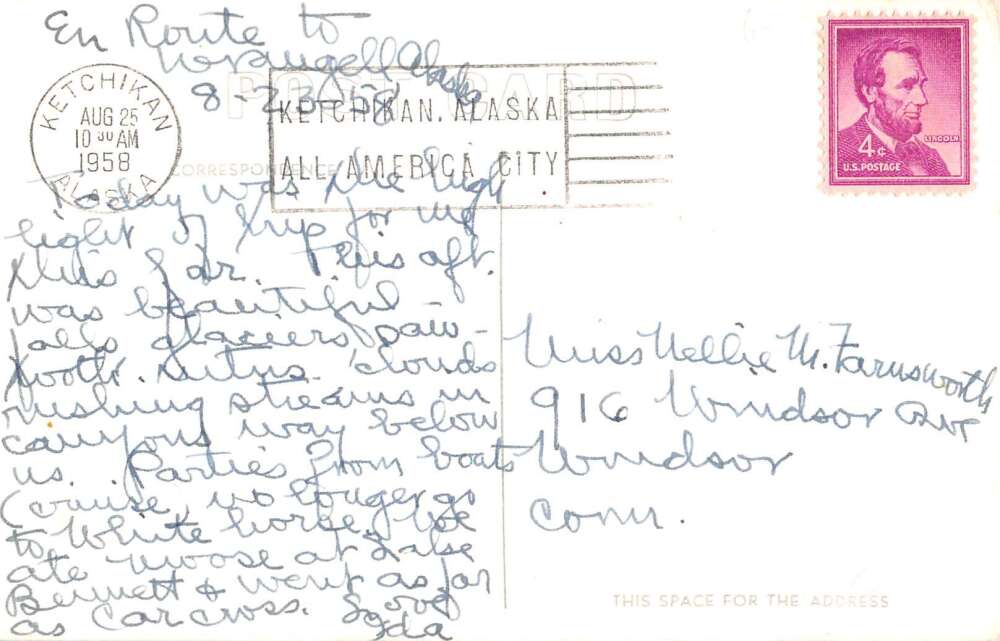 En Route to
Wrangell Alaska
8-23-58
POST CARD
KETCHIKAN
AUG 25
10 30 AM
1958
ALASKA
KETCHIKAN, ALASKA
ALL AMERICA CITY
4¢
LINCOLN
U.S. POSTAGE
CORRESPONDENCE
Today was the high
light of trip for me
this far. This aft.
was beautiful -
falls glaciers saw-
tooth. clouds
rushing streams in
canyons way below
us. Parties from boats
(cruise) no longer go
to White horse. We
ate moose at Lake
Bennett & went as far
as Carcross. Love
Ida
Miss Nellie M. Farnsworth
916 Windsor Ave
Windsor
Conn.
THIS SPACE FOR THE ADDRESS